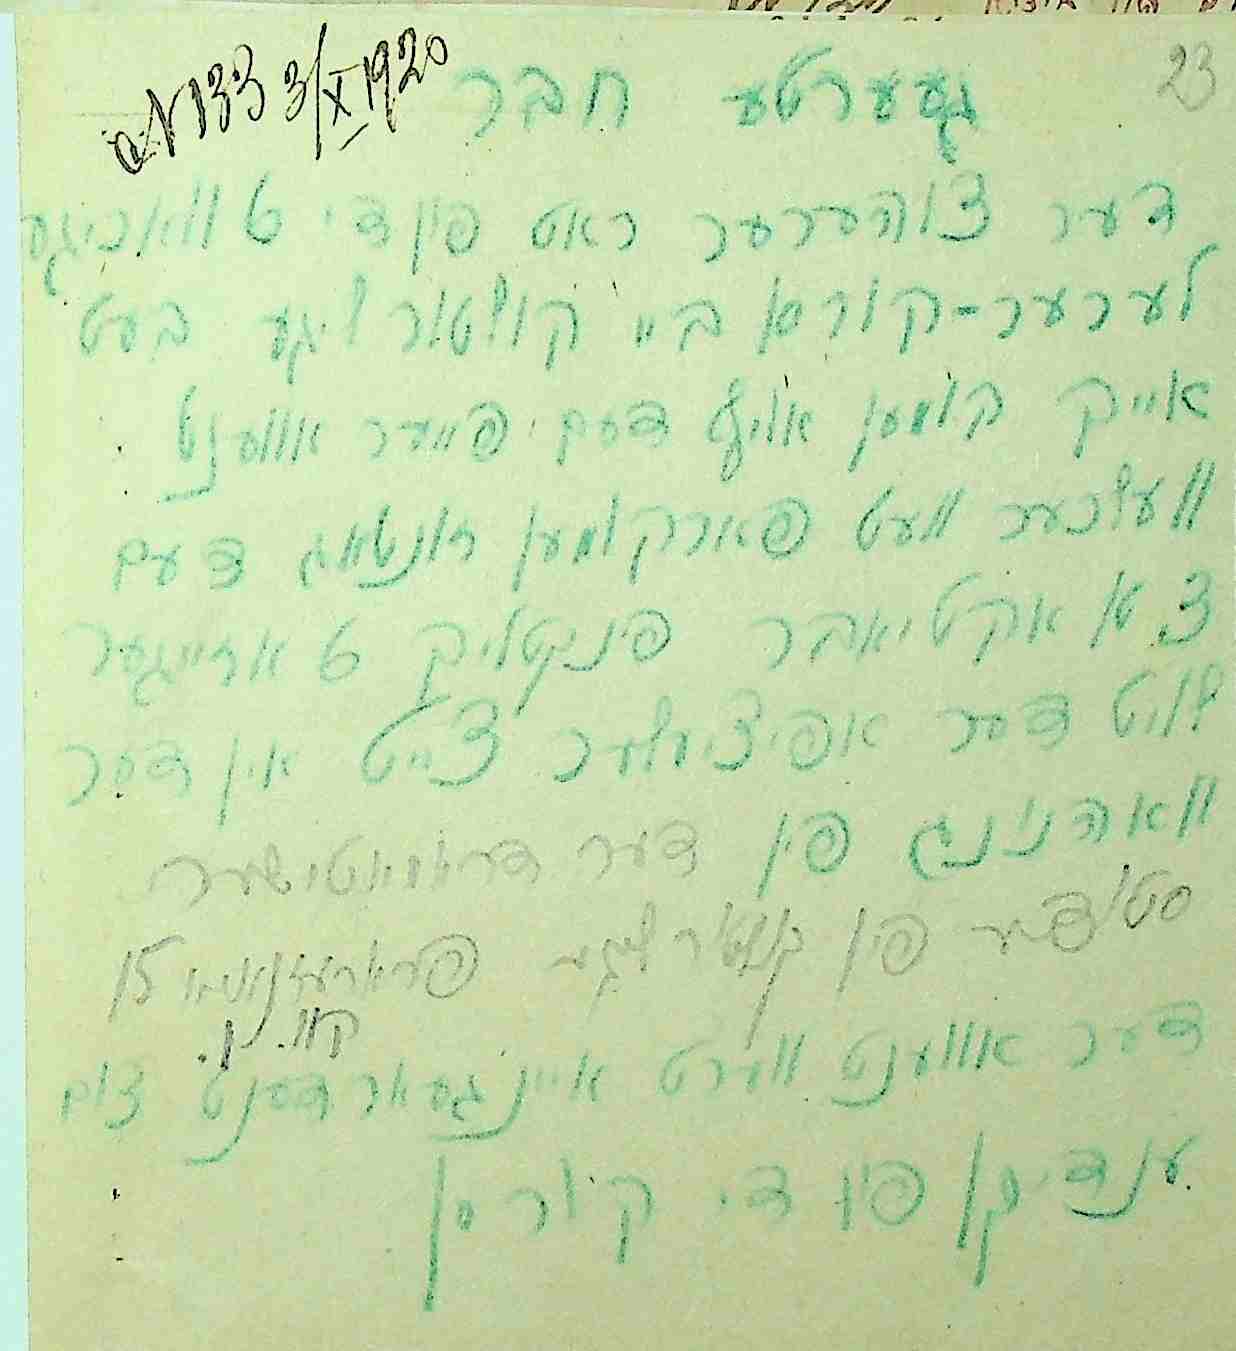 23
№ 133 3/X 1920
געערטע חבר
דער צוהערער ראט פון די 6 וואכיגע
לערער-קורס ביי קולטור ליגע בעט
אייך קומען אויף דעם פייער אווענט
וועלכער וועט פארקומען זונטאג דעם
3 טן אקטיאבר פינקטליך 6 אזייגער
לויט דער אפיציעלער צייט אין דער
וואהנונג פון דער דראמאטישער
סטודיע פון קולטור ליגע 15
קוו.
דער אווענט ווערט איינגעארדענט צום
ענדיקן פון די קורסן